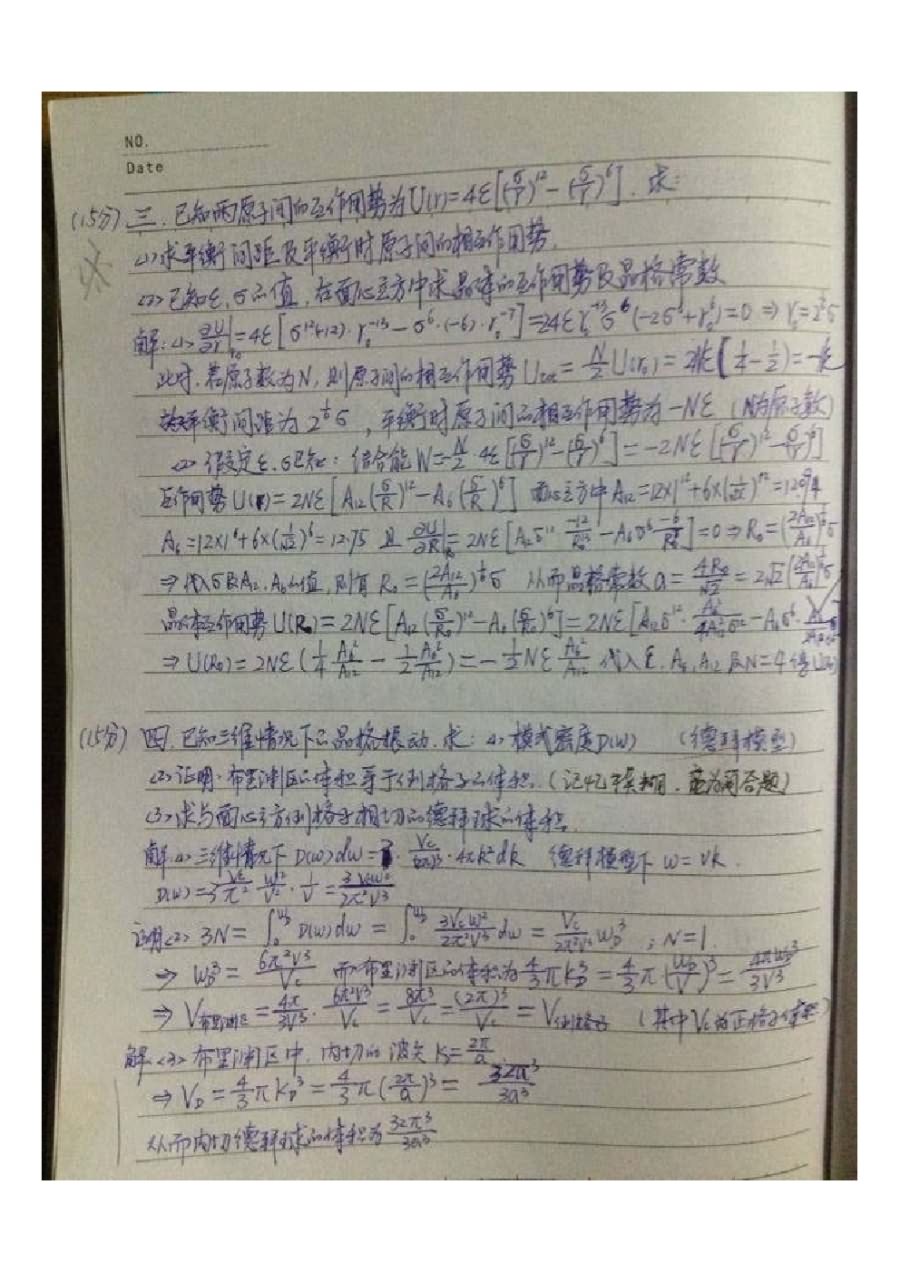 NO.
Date
(15分) 三. 已知两原子间的互作用势为U(r)=4ε[(σ/r)^12-(σ/r)^6]. 求:
<1>求平衡间距及平衡时原子间的相互作用势.
<2>已知ε,σ的值,在面心立方中求晶体的互作用势及晶格常数
解:<1> ∂U/∂r|r₀=4ε[σ^12(-12)·r₀^-13-σ^6·(-6)·r₀^-7]=24εr₀^-13σ^6(-2σ^6+r₀^6)=0 ⇒ r₀=2^(1/6)σ
此时,若原子数为N,则原子间的相互作用势U_tot=N/2 U(r₀)=2Nε(1/4-1/2)=
平衡间距为2^(1/6)σ,平衡时原子间的相互作用势为-Nε (N为原子数)
<2> 假定ε,σ已知:结合能W=-N/2·4ε[(σ/r)^12-(σ/r)^6]=-2Nε[(σ/r)^12-(σ/r)^6]
互作用势U(R)=2Nε[A₁₂(σ/R)^12-A₆(σ/R)^6] 面心立方中A₁₂=12×1^12+6×(1/√2)^12=12.094
A₆=12×1^6+6×(1/√2)^6=12.75 且 ∂U/∂R|=2Nε[A₁₂σ^12 -12/R₀^13-A₆σ^6 -6/R₀^7]=0⇒R₀=(2A₁₂/A₆)^(1/6)σ
⇒代入σ及A₁₂,A₆的值,则有R₀=(2A₁₂/A₆)^(1/6)σ 从而晶格常数a=4R₀/√2=2√2(2A₁₂/A₆)^(1/6)σ
晶体互作用势U(R₀)=2Nε[A₁₂(σ/R₀)^12-A₆(σ/R₀)^6]=2Nε[A₁₂σ^12·A₆²/4A₁₂²σ^12-A₆σ^6·
⇒U(R₀)=2Nε(1/4 A₆²/A₁₂-1/2 A₆²/A₁₂)=-1/2 Nε A₆²/A₁₂ 代入ε,A₆,A₁₂及N=4得U(R₀)
(15分) 四.已知三维情况下的晶格振动.求:<1>模式密度D(w) (德拜模型)
<2>证明:布里渊区的体积等于倒格子的体积.(记忆模糊,应为简答题)
<3>求与面心立方倒格子相切的德拜球的体积.
解.<1>三维情况下D(w)dw=3·Vc/(2π)³·4πk²dk 德拜模型下w=vk.
D(w)=3 Vc/2π² w²/v²·1/v=3Vcw²/2π²v³
证明<2> 3N=∫₀^wD D(w)dw=∫₀^wD 3Vcw²/2π²v³ dw=Vc/2π²v³ wD³ ; N=1.
⇒ wD³=6π²v³/Vc 而布里渊区的体积为4/3πkD³=4/3π(wD/v)³=4πwD³/3v³
⇒V布里渊区=4π/3v³·6π²v³/Vc=8π³/Vc=(2π)³/Vc=V倒格子 (其中Vc为正格子体积)
解<3>布里渊区中,内切的波矢k=2π/a
⇒VD=4/3πkD³=4/3π(2π/a)³=32π³/3a³
从而内切德拜球的体积为32π³/3a³